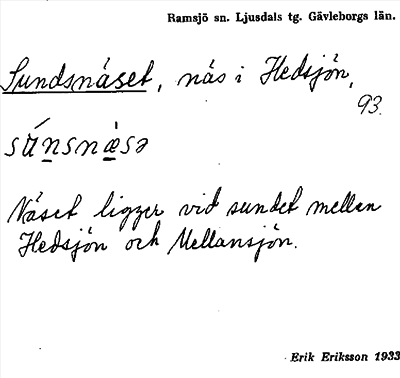 Ramsjö sn. Ljusdals tg. Gävleborgs län.
Sundsnäset, näs i Hedsjön,
93.
súnsnæ̀sə
Näset ligger vid sundet mellan
Hedsjön och Mellansjön.
Erik Eriksson 1933